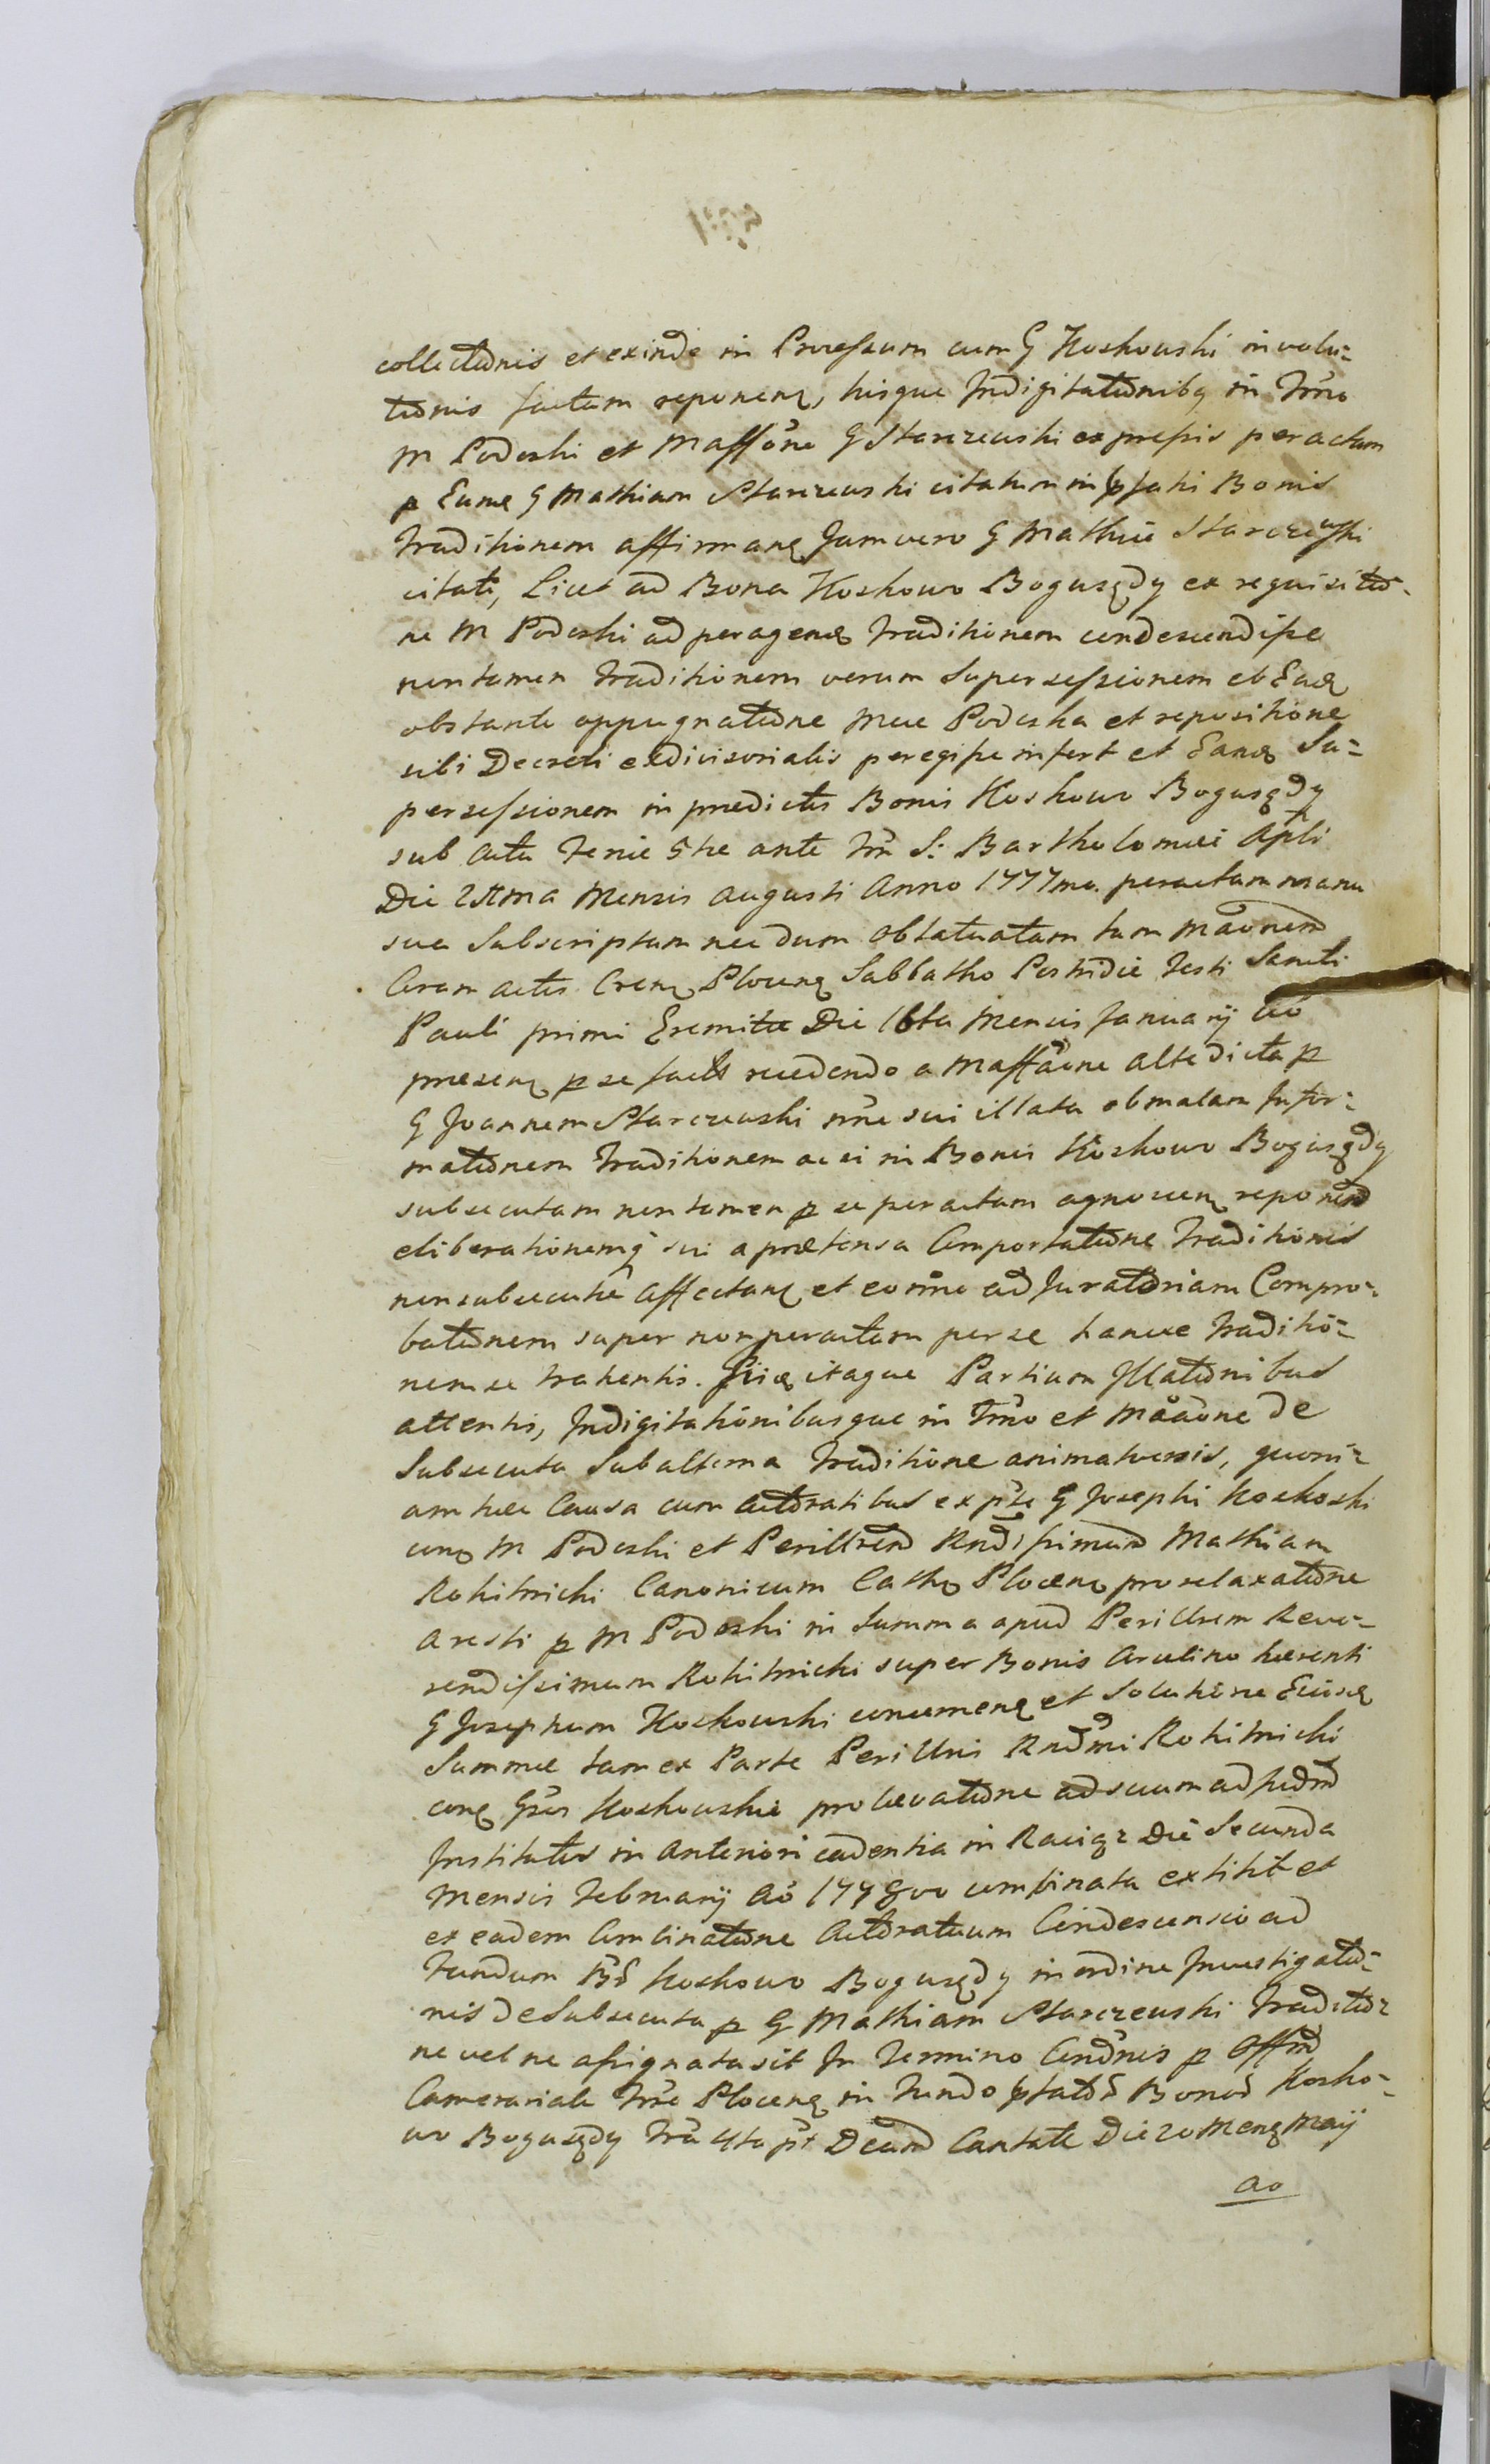 collectionis et exinde in Processum cum G Koskowski involu-
tionis factam reponenq, hisque Indigitationibq in Trno
M Podoski et Maffone G Starczewski expressis peractam
p Eumq G Mathiam Starczewski citatum in pfatis Bonis
Traditionem affirmanq Jamvero G Mathiæ Starczewski
citati, Licet ad Bona Koskowo Bogusędy ex requisitio-
ne M Podoski ad peragenq Traditionem condescendisse
nontamen Traditionem verum Supersessionem ob Eanq
obstante oppugnatione Mcæ Podoska et repositione
sibi Decreti exdivisorialis peregisse infert et Eanq Su-
persessionem in prædictis Bonis Koskowo Bogusędy
sub actu Feriæ 5tæ ante Fm S: Bartholomæi Apli
Die 21ma Mensis Augusti Anno 1777mo. peractam manu
sua Subscriptam nec dum oblatuatam tum
Coram Actis Crenq Plocenq Sabbatho Postridie Festi Sancti
Pauli primi Eremitæ Die 16ta Mensis Januarij Ao
præsenq p se factis recedendo a Maffaone altedicta p
G Joannem Starczewski nne sui illata ob malam Infor-
mationem Traditionem ac si in Bonis Koskowo Bogusędy
subsecutam nontamen p se peractam agnocenq reponend
eliberationemq sui a prætensa Comportatione Traditionis
nonsubsecutæ affectanq et eo nne ad Juratoriam Compro-
bationem super nonperactam per se hancce Traditio-
nem se trahentis. Hisq itaque Partium Illationibus
attentis, Indigitationibusque in Trno et Maaone de
Subsecuta Subalterna Traditione animatversis, quoni-
am hæc Causa cum Actoratibus ex pte G Josephi Koskoski
conq M Podoski et Perillrem Rndissimum Mathiam
Rokitnicki Canonicum Cathq Plocenq pro relaxatione
Aresti p M Podoski in Summa apud Perillrem Reve-
rendissimum Rokitnicki super Bonis Arcelino hærenti
G Josephum Koskowski concernenq et Solutione Eiusq
Summæ tam ex Parte Perillris Rndmi Rokitnicki
conq Gsos Koskowskie pro levatione ad suum ad
Institutis in Anteriori cadentia in Raciąz Die Secunda
Mensis Februarij Ao 1778vo combinata extitit et
ex eadem Combinatione Actoratuum Condescensio ad
Fundum Bs Koskowo Bogusędy in ordine Investigatio-
nis de Subsecuta p G Mathiam Starczewski Traditio-
ne vel ne assignata sit In Termino Condnis p Offm
Camerariale Træ Plocenq in Fundo pfator Bonor Kosko-
wo Bogusędy Fra 4ta pt Dcam Cantate Die 20 Menq Maij
Ao